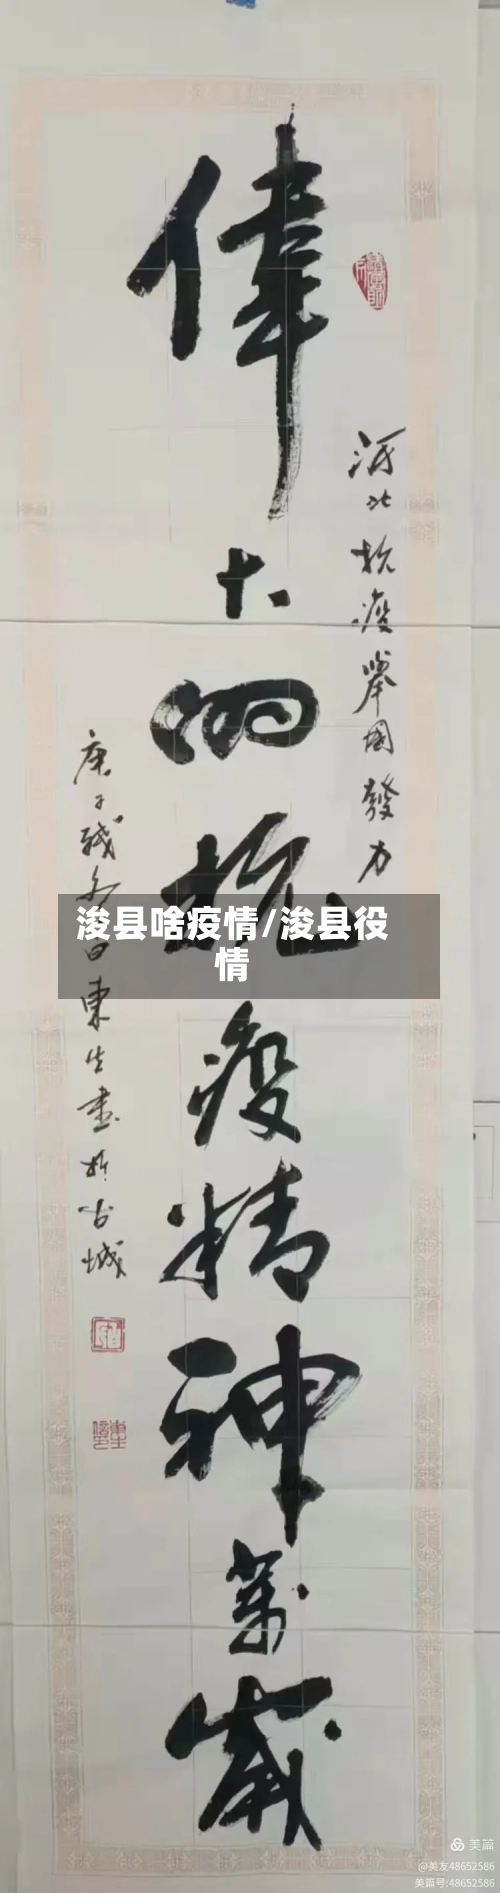 河北抗疫举国發力
偉大的抗疫精神萬歲
庚子
東生書於古城
浚县啥疫情/浚县役
情
美篇
@美友48652586
美篇号:48652586